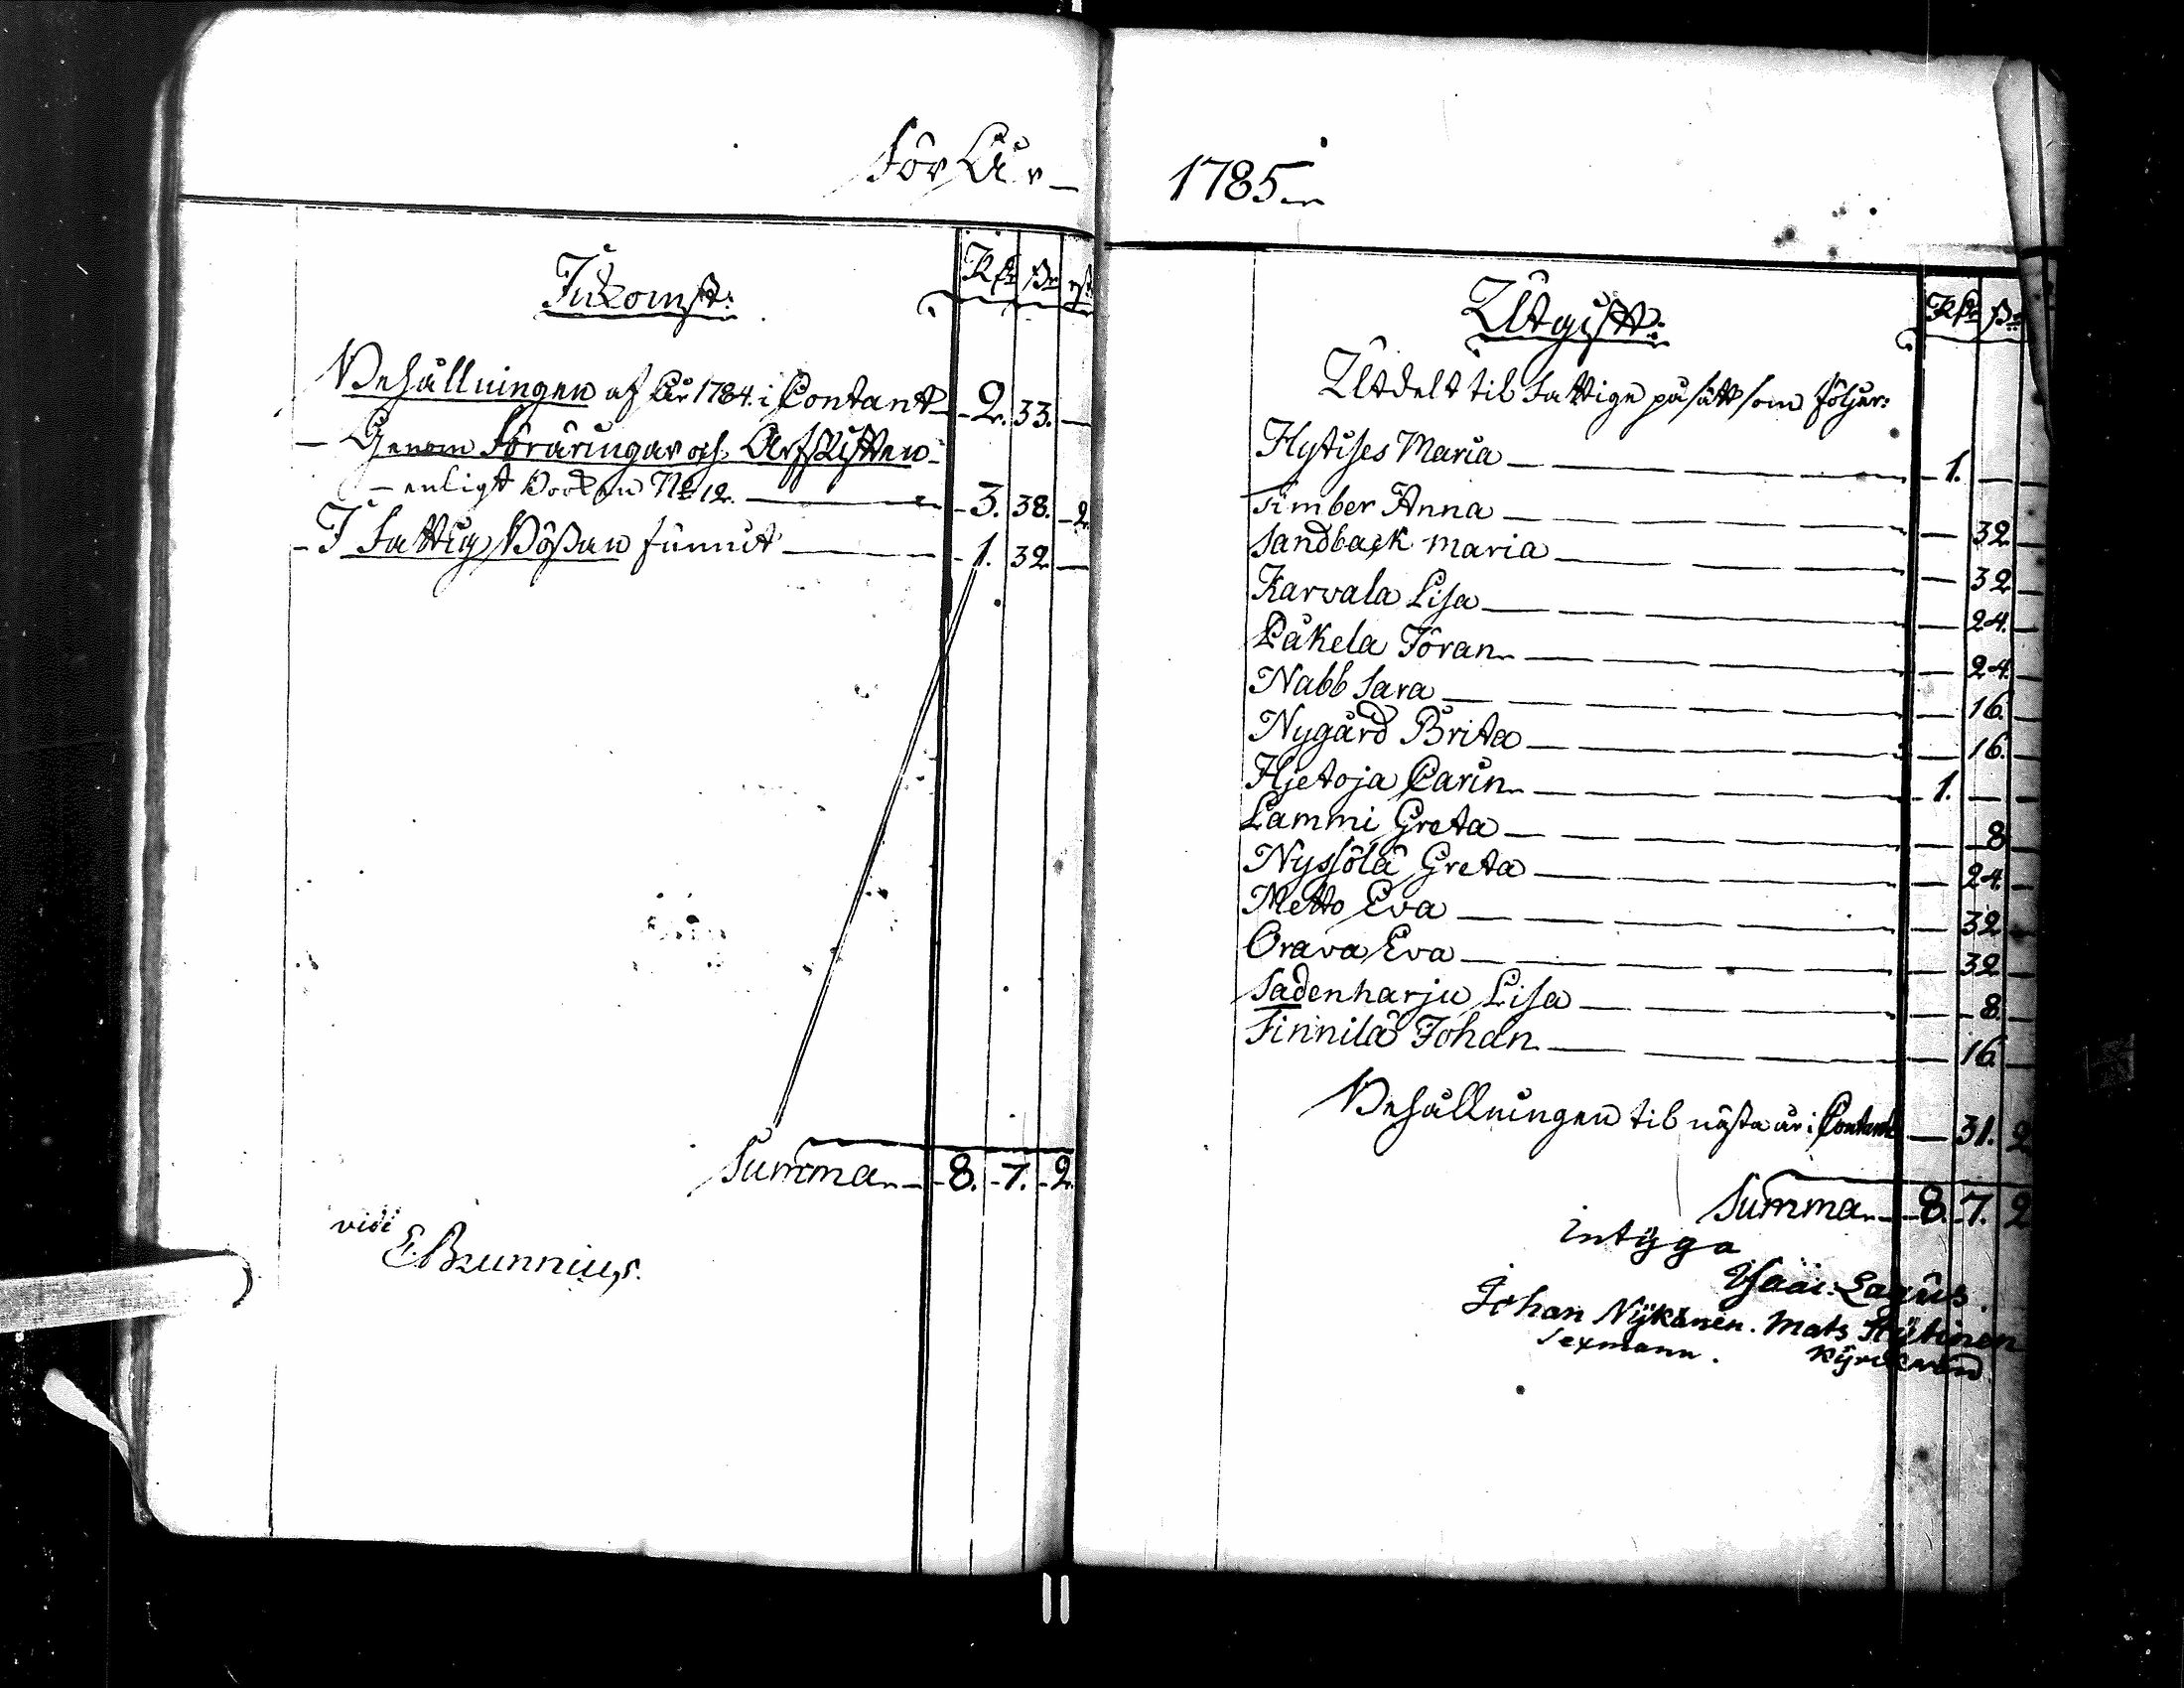 För År
Inkomst: Rd ß rst
Behållningen af År 1784. i Contant 2. 33.
Genom Föräringar och Arfskiften
enligt Boken No 12. 3. 38. 2
I Fattig Bößan funnit 1. 32
Summa 8. 7. 2.
vidi
E. Brunnius.
1785
Utgift: Rd ß
Utdelt til Fattige på sätt som följer:
Hytises Maria 1.
Timber Anna 32
Sandback Maria 32
Karvala Lisa 24.
Påkela Jöran 24.
Nabb Sara 16.
Nygård Brita 16.
Hjetoja Carin 1.
Lammi Greta 8
Nyssölä Greta 24.
Metto Eva 32
Orava Eva 32
Sadenharju Lisa 8.
Finnilä Johan 16
Behållningen til nästa år i Contant 31. 2
Summa 8. 7. 2
intyga
Isaac Lagus.
Johan Nykänen. Mats Hytinen
Sexmann. Kyrckverd